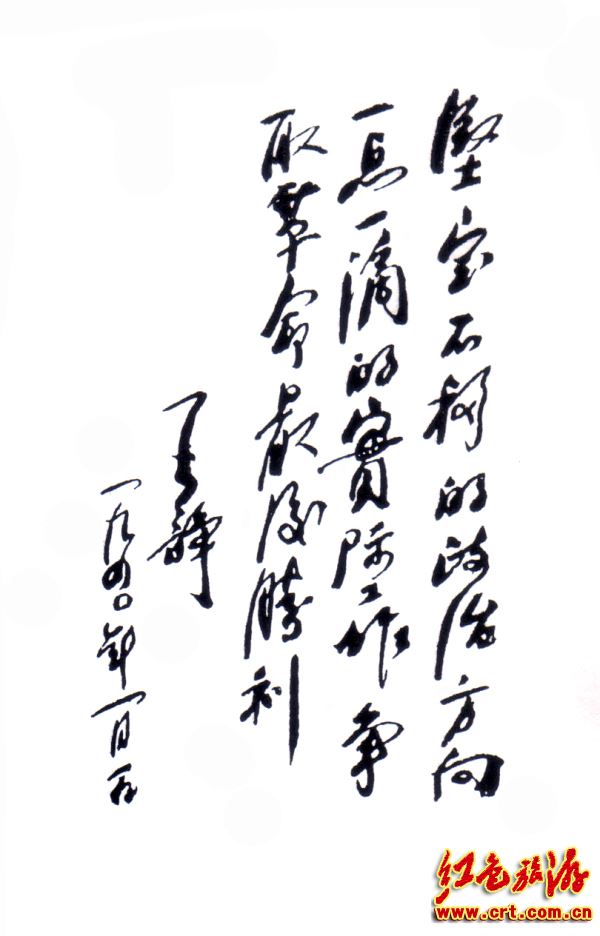 堅定不移的政治方向
一点一滴的實际工作争
取革命最後勝利
王諍
一九四〇年一月
红色旅游
www.crt.com.cn